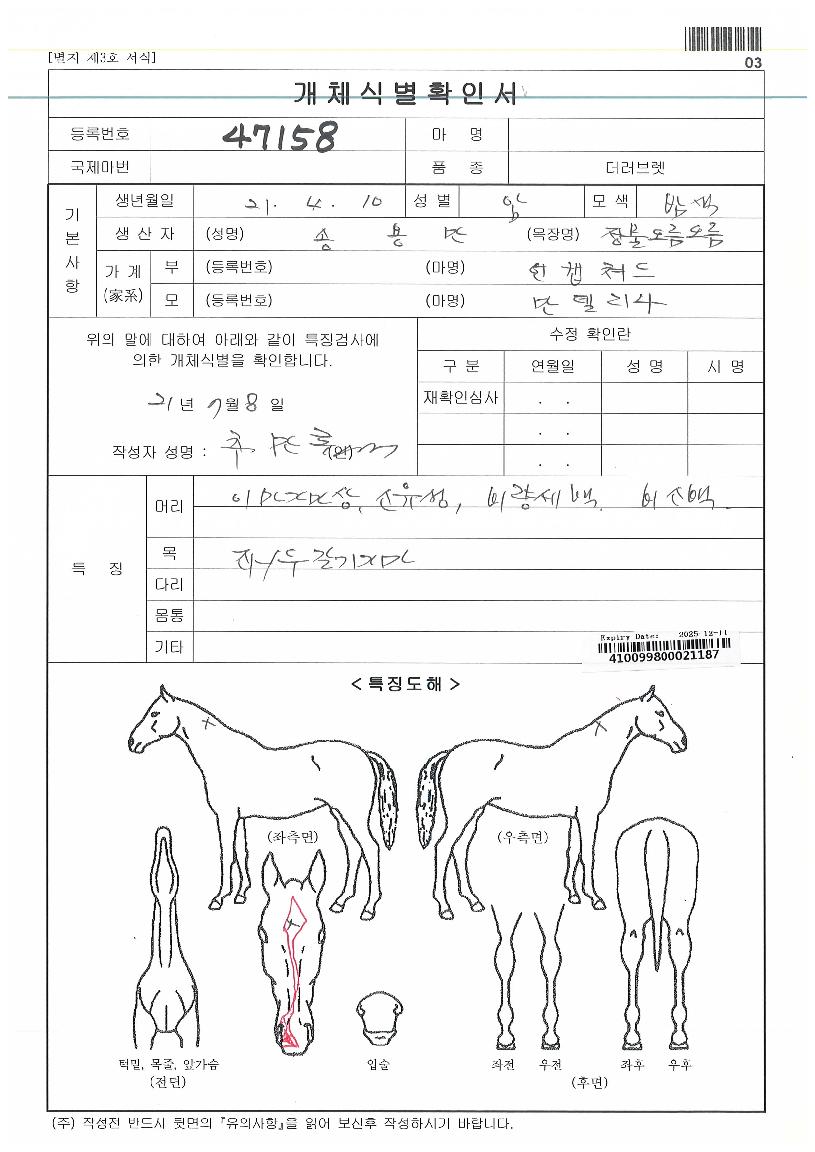 [별지 제3호 서식]
03
개체식별확인서
등록번호 47158 마 명
국제마번 품 종 더러브렛
기본사항
생년월일 21. 4. 10 성별 암 모색 밤색
생산자 (성명) 송 용 만 (목장명) 장물오름오름
가계 (家系) 부 (등록번호) (마명) 언캡쳐드
모 (등록번호) (마명) 만델리사
위의 말에 대하여 아래와 같이 특징검사에
의한 개체식별을 확인합니다.
21년 7월 8일
작성자 성명 : (인)
수정 확인란
구 분 연월일 성 명 시 명
재확인심사 . .
. .
. .
특 징
머리 이마지마상, 산유성, 비량세백. 비소백
목 좌우갈기지마
다리
몸통
기타
Expiry Date: 2025-12-11
410099800021187
< 특징도해 >
(좌측면) (우측면)
턱밑, 목줄, 앞가슴 입술 좌전 우전 좌후 우후
(전딘) (후면)
(주) 작성전 반드시 뒷면의 『유의사항』을 읽어 보신후 작성하시기 바랍니다.